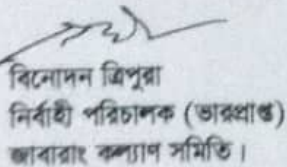 বিনোদন ত্রিপুরা
নির্বাহী পরিচালক (ভারপ্রাপ্ত)
জাবারাং কল্যাণ সমিতি।